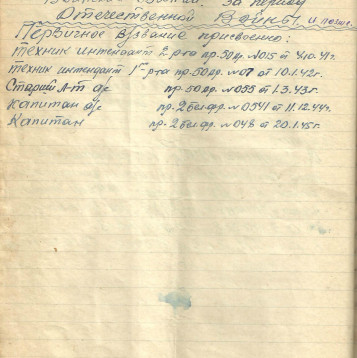 за период
Отечественной Войны и позже.
Первичное в/звание присвоено:
техник интендант 2 р-га пр. 50 др. №015 от 4.10.41г.
техник интендант 1го р-га пр. 50 др. №07 от 10.1.42г.
Старший л-т а/с пр. 50 др. №055 от 1.3.43г.
Капитан а/с пр. 2 Бел.фр. №0541 от 11.12.44г.
Капитан пр. 2 Бел.фр. №048 от 20.1.45г.